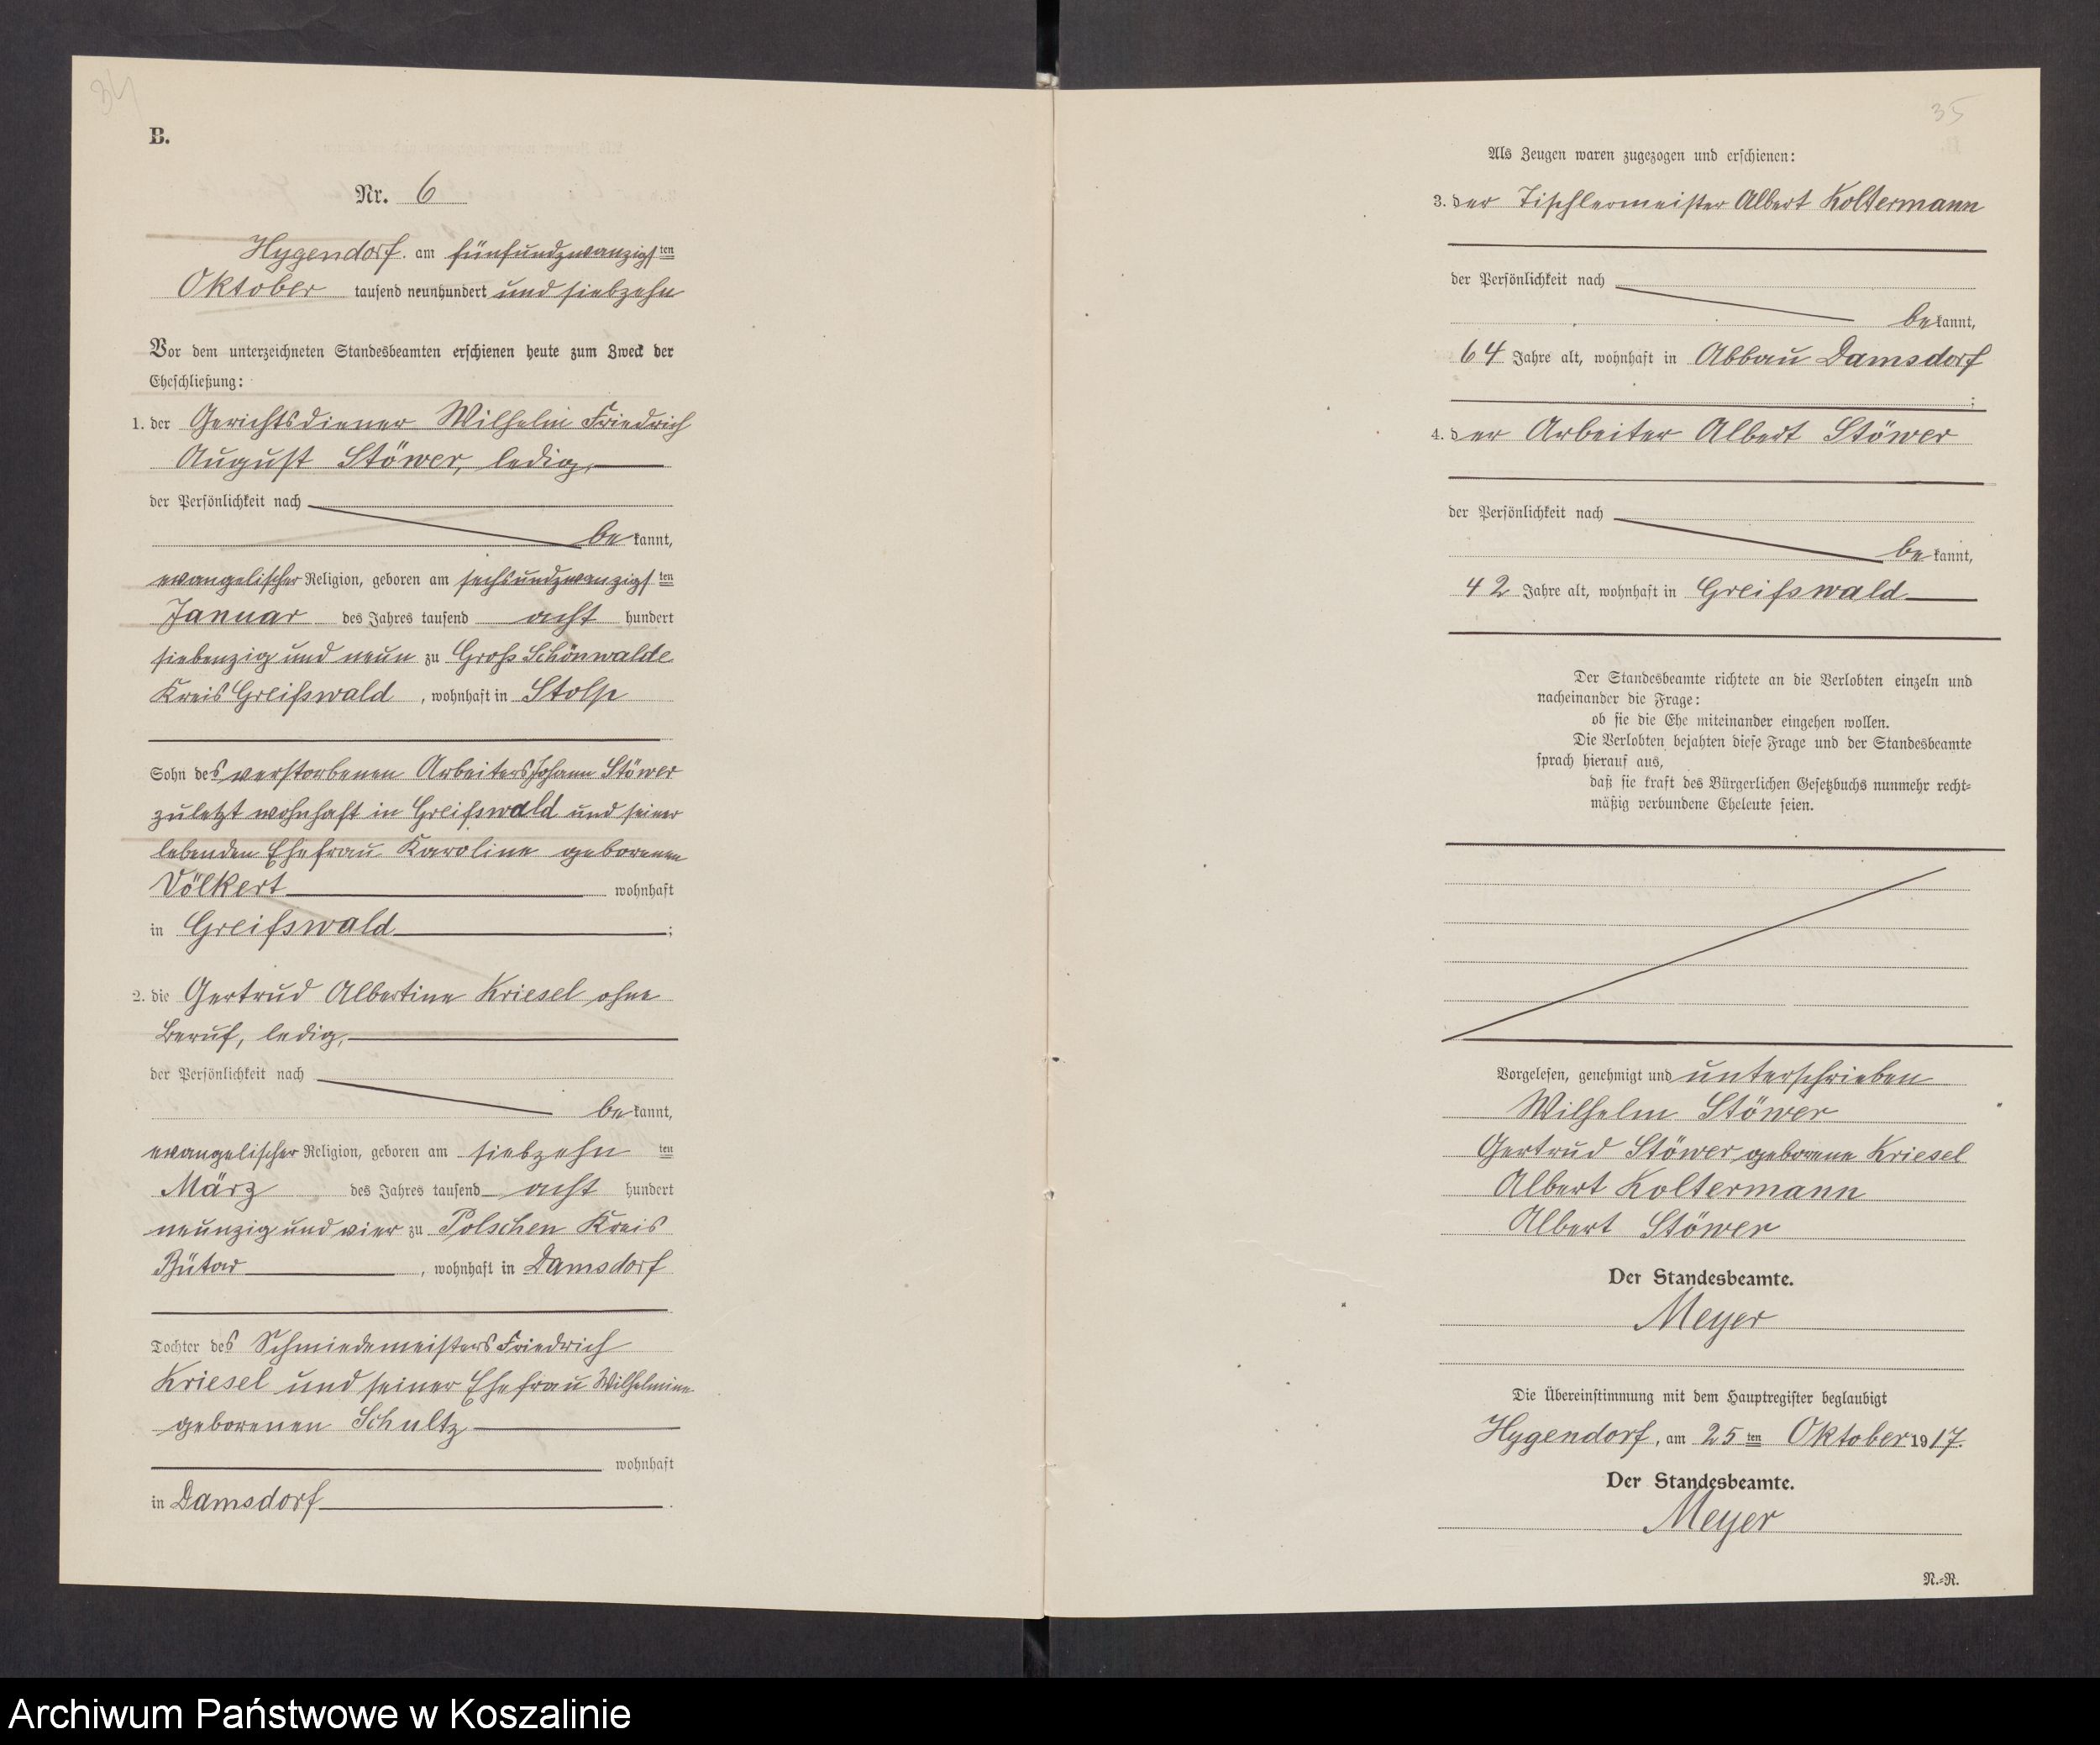 34
B.
Nr. 6
Hygendorf am fünfundzwanzigsten
Oktober tausend neunhundert und siebzehn
Vor dem unterzeichneten Standesbeamten erschienen heute zum Zweck der
Eheschließung:
1. der Gerichtsdiener Wilhelm Friedrich
August Stöwer, ledig,
der Persönlichkeit nach
bekannt,
evangelischer Religion, geboren am sechsundzwanzigsten
Januar des Jahres tausend acht hundert
siebenzig und neun zu Groß Schönwalde
Kreis Greifswald, wohnhaft in Stolp
Sohn des verstorbenen Arbeiters Johann Stöwer
zuletzt wohnhaft in Greifswald und seiner
lebenden Ehefrau Karoline geborenen
Völkert wohnhaft
in Greifswald;
2. die Gertrud Albertine Kriesel ohne
Beruf, ledig,
der Persönlichkeit nach
bekannt,
evangelischer Religion, geboren am siebzehn ten
März des Jahres tausend acht hundert
neunzig und vier zu Polschen Kreis
Bütow, wohnhaft in Damsdorf
Tochter des Schmiedemeisters Friedrich
Kriesel und seiner Ehefrau Wilhelmine
geborenen Schultz
wohnhaft
in Damsdorf.
35
Als Zeugen waren zugezogen und erschienen:
3. der Tischlermeister Albert Koltermann
der Persönlichkeit nach
bekannt,
64 Jahre alt, wohnhaft in Abbau Damsdorf
;
4. der Arbeiter Albert Stöwer
der Persönlichkeit nach
bekannt,
42 Jahre alt, wohnhaft in Greifswald
Der Standesbeamte richtete an die Verlobten einzeln und
nacheinander die Frage:
ob sie die Ehe miteinander eingehen wollen.
Die Verlobten bejahten diese Frage und der Standesbeamte
sprach hierauf aus,
daß sie kraft des Bürgerlichen Gesetzbuchs nunmehr recht-
mäßig verbundene Eheleute seien.
Vorgelesen, genehmigt und unterschrieben
Wilhelm Stöwer
Gertrud Stöwer geborene Kriesel
Albert Koltermann
Albert Stöwer
Der Standesbeamte.
Meyer
Die Übereinstimmung mit dem Hauptregister beglaubigt
Hygendorf, am 25 ten Oktober 1917.
Der Standesbeamte.
Meyer
N.-R.
Archiwum Państwowe w Koszalinie